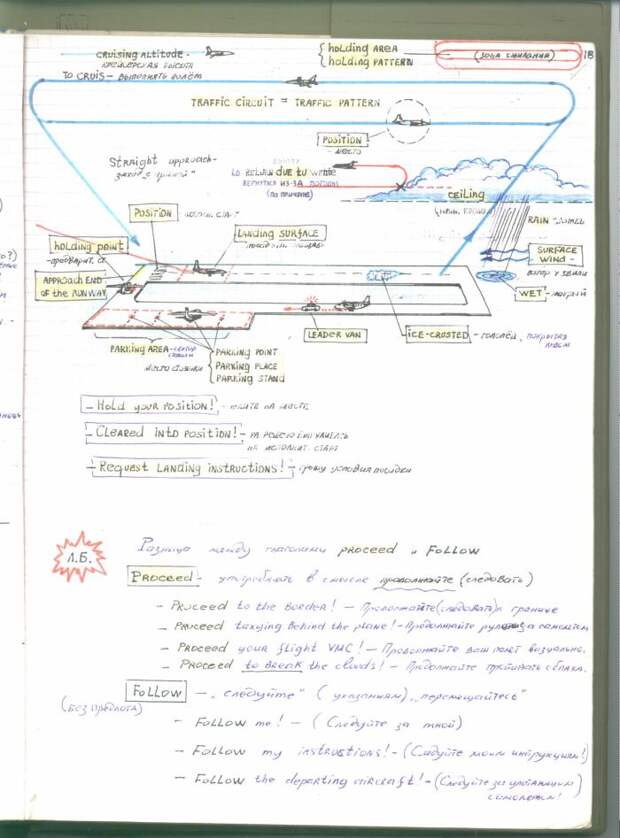 CRUISING ALTITUDE -
крейсерская высота
TO CRUIS - выполнять полёт
holding AREA
holding PATTERN
(зона ожидания)
18
TRAFFIC CIRCUIT = TRAFFIC PATTERN
POSITION
- место
Straight approach-
заход с прямой"
DUE TO
вернуться из-за погоды
(по причине)
CEiling
RAIN -
SURFACE
WIND -
ветер у земли
WET - мокрый
POSITION
LANDING SURFACE
holding point
APPROACH END
OF the RUNWAY
PARKING AREA -
место стоянки
PARKING POINT
PARKING PLACE
PARKING STAND
LEADER VAN
ICE-CROSTED - гололёд, покрытая
льдом
- Hold your position! - ждите на месте
- Cleared into position! - разрешаю занять
исполнит. старт
- Request Landing instructions! - прошу условия посадки
Л.Б.
Разница между глаголами PROCEED и FOLLOW
PROCEED - употреблять в смысле продолжайте (следовать)
- Proceed to the border! - Продолжайте (следовать) к границе
- Proceed taxying behind the plane! - Продолжайте руление за самолетом
- Proceed your flight VMC! - Продолжайте ваш полет визуально.
- Proceed to break the clouds! - Продолжайте пробивать облака.
FOLLOW - "следуйте" (указаниям), "перемещайтесь"
(без предлога)
- Follow me! - (Следуйте за мной)
- Follow my instructions! - (Следуйте моим инструкциям!)
- Follow the departing aircraft! - (Следуйте за улетающим
самолетом!